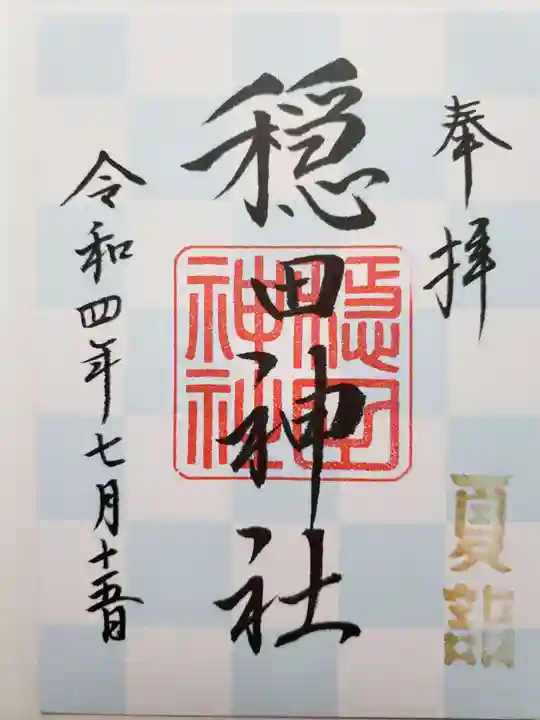 奉拝
夏詣
穏田神社
穏田神社
令和四年七月十五日